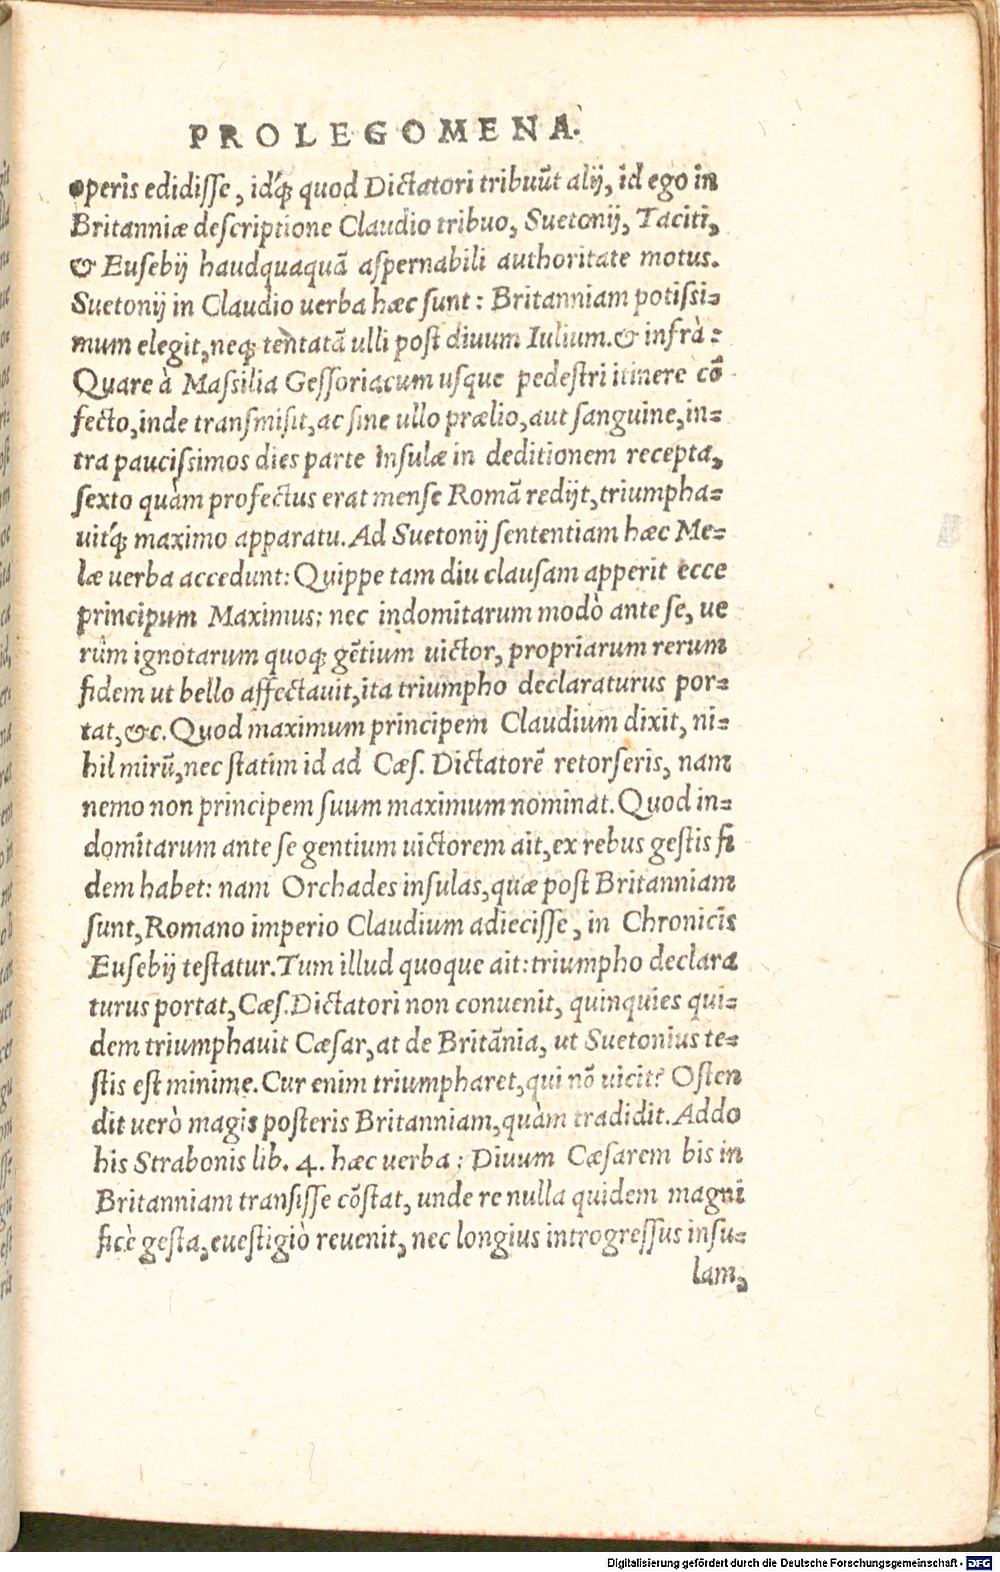 PROLEGOMENA.
operis edidisse, idq́ꝫ quod Dictatori tribuũt alij, id ego in
Britanniæ descriptione Claudio tribuo, Suetonij, Taciti,
& Eusebij haudquaquã aspernabili authoritate motus.
Suetonij in Claudio uerba hæc sunt: Britanniam potissi=
mum elegit, neqꝫ tentatã ulli post diuum Iulium. & infrà:
Quare à Massilia Gessoriacum usque pedestri itinere cõ
fecto, inde transmisit, ac sine ullo prælio, aut sanguine, in=
tra paucissimos dies parte Insulæ in deditionem recepta,
sexto quàm profectus erat mense Romã redijt, triumpha=
uitq́ꝫ maximo apparatu. Ad Suetonij sententiam hæc Me=
læ uerba accedunt: Quippe tam diu clausam apperit ecce
principum Maximus: nec indomitarum modò ante se, ue
rũm ignotarum quoqꝫ gẽtium uictor, propriarum rerum
fidem ut bello affectauit, ita triumpho declaraturus por=
tat, &c. Quod maximum principem Claudium dixit, ni=
hil mirũ, nec statim id ad Cæs. Dictatorẽ retorseris, nam
nemo non principem suum maximum nominat. Quod in=
domitarum ante se gentium uictorem ait, ex rebus gestis fi
dem habet: nam Orchades insulas, quæ post Britanniam
sunt, Romano imperio Claudium adiecisse, in Chronicis
Eusebij testatur. Tum illud quoque ait: triumpho declara
turus portat, Cæs. Dictatori non conuenit, quinquies qui=
dem triumphauit Cæsar, at de Britãnia, ut Suetonius te=
stis est minime. Cur enim triumpharet, qui nõ uicit? Osten
dit uerò magis posteris Britanniam, quàm tradidit. Addo
his Strabonis lib. 4. hæc uerba: Diuum Cæsarem bis in
Britanniam transisse cõstat, unde re nulla quidem magni
ficè gesta, euestigiò reuenit, nec longius introgressus insu=
lam,
Digitalisierung gefördert durch die Deutsche Forschungsgemeinschaft - DFG